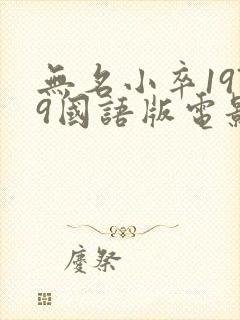 無名小卒19
9國語版電影
慶祭